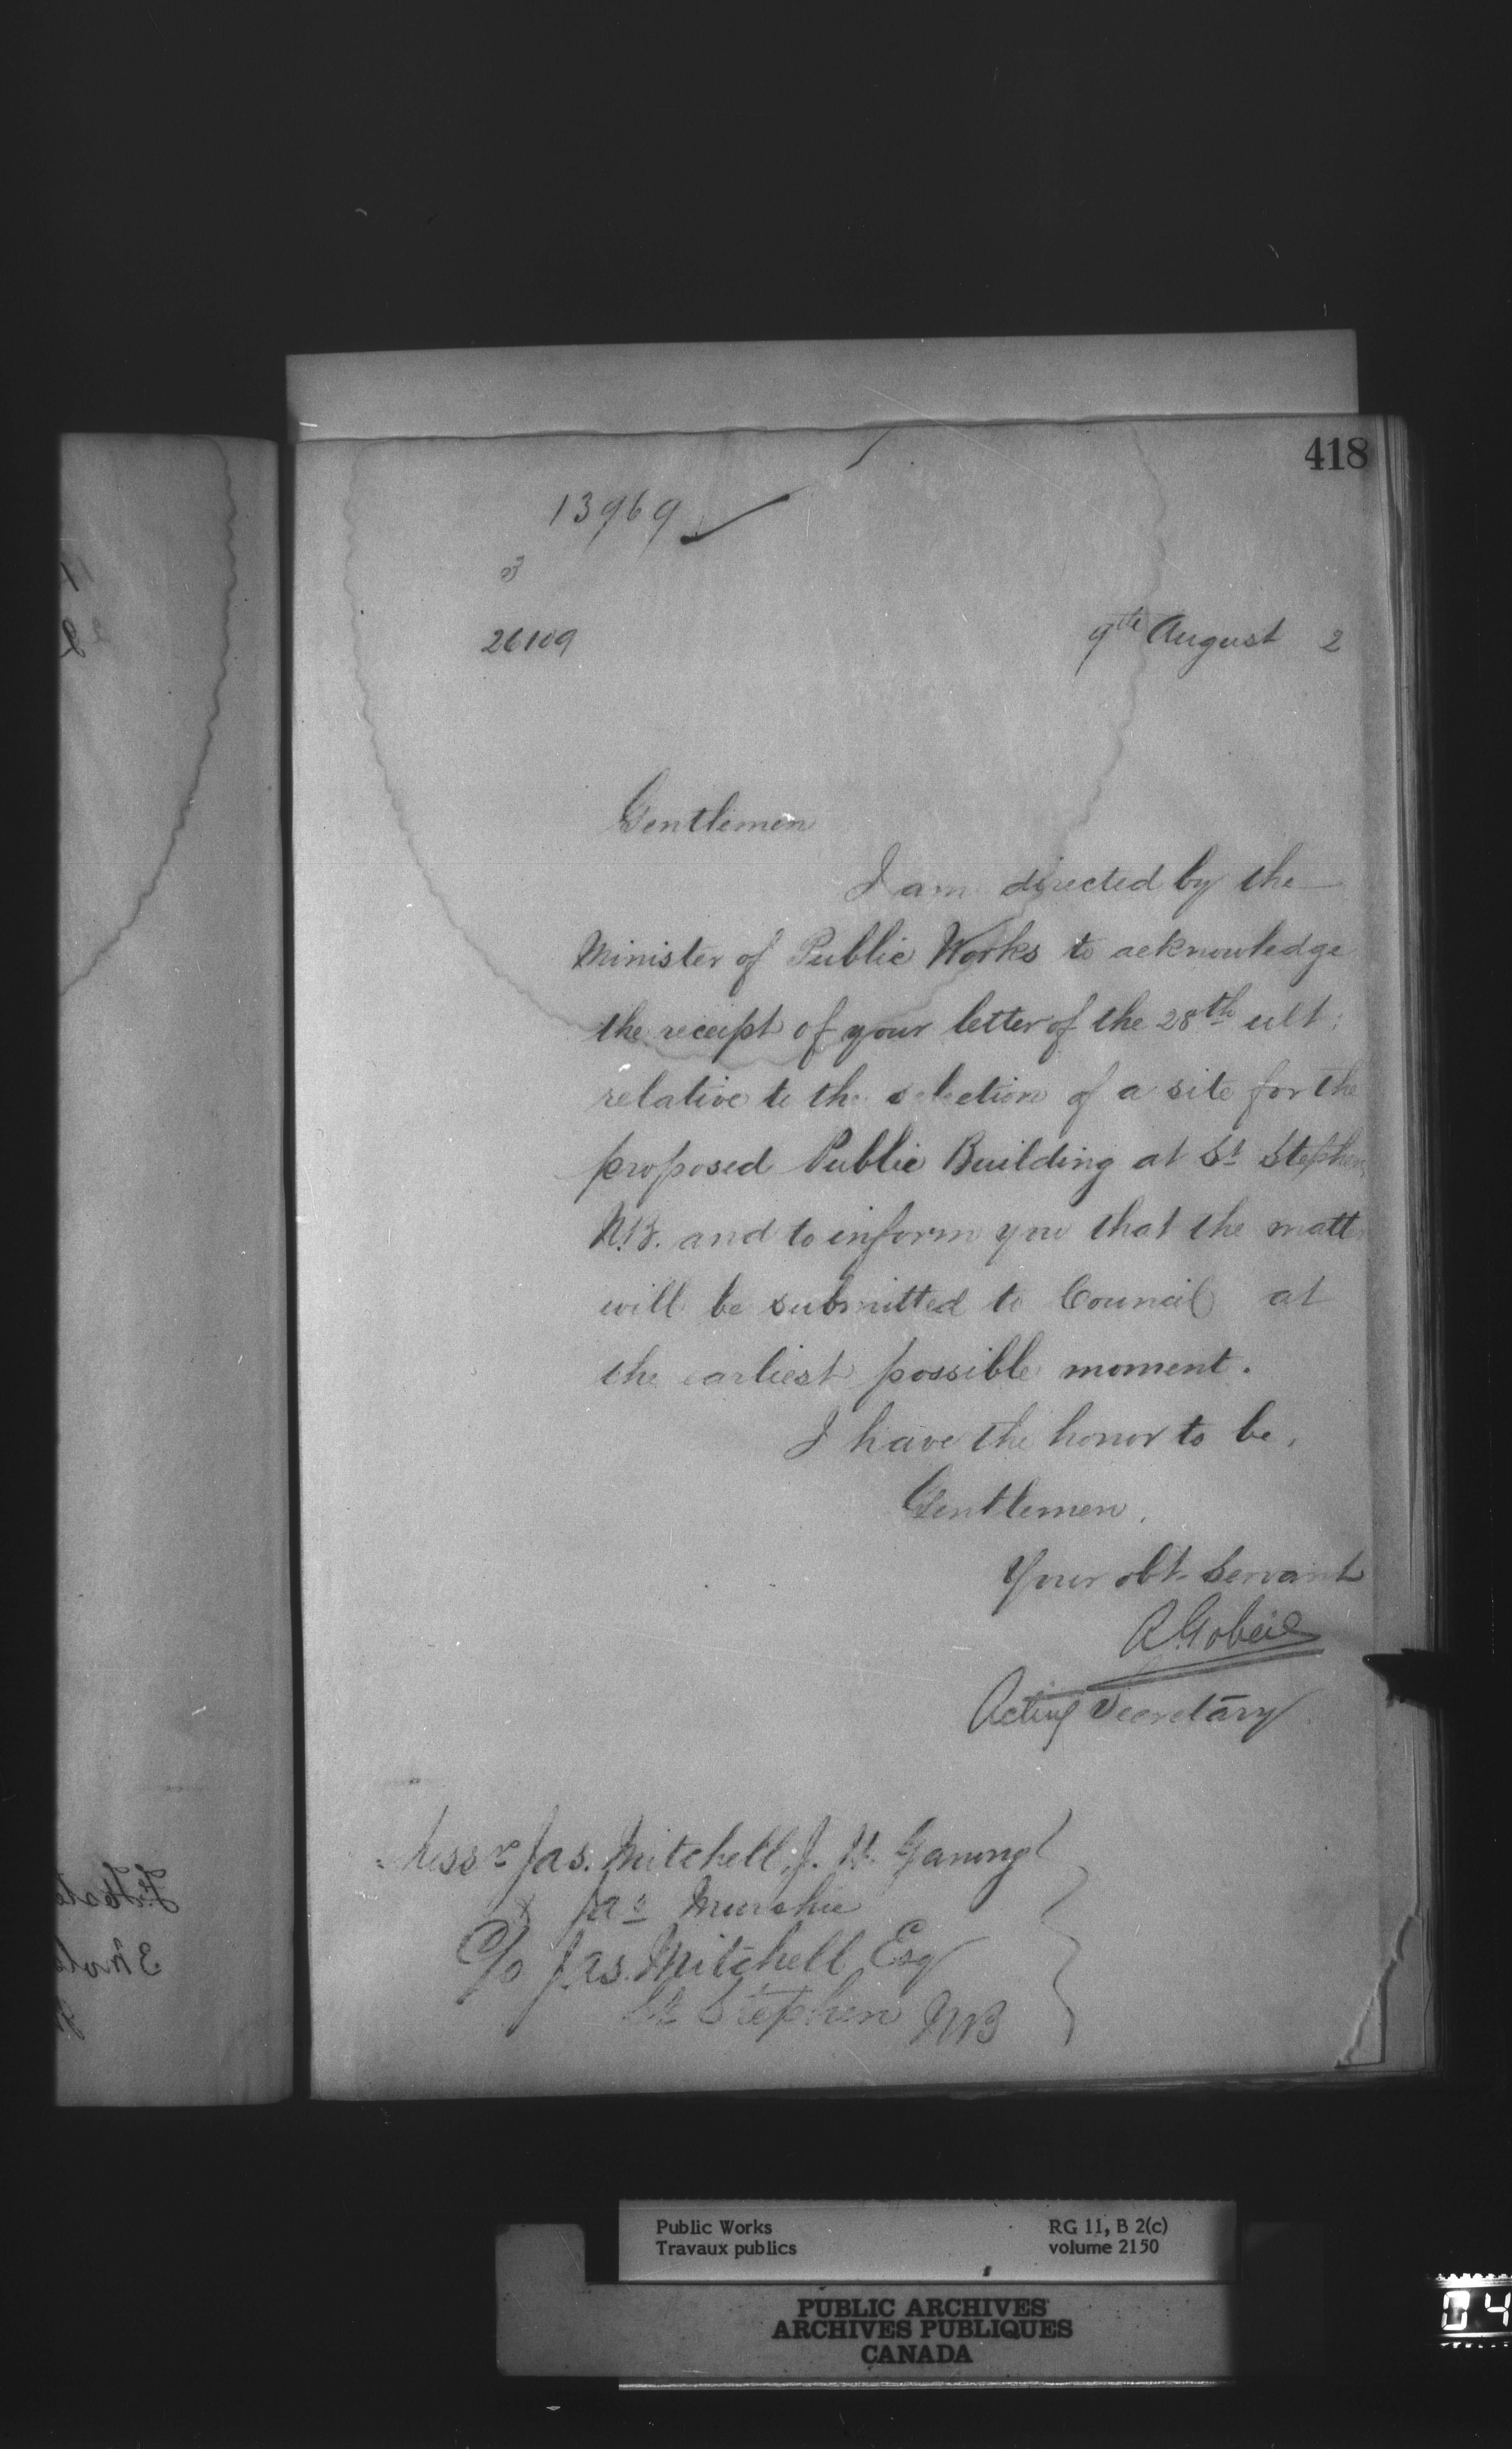 418
13969
26109
9th August 2
Gentlemen
I am directed by the
Minister of Public Works to acknowledge
the receipt of your letter of the 28th ult:
relative to the selection of a site for the
proposed Public Building at St Stephen
N.B. and to inform you that the matt
will be submitted to Council at
the earliest possible moment.
I have the honor to be,
Gentlemen,
Your obt. Servant
A Gobeil
Acting Secretary
Messrs Jas. Mitchell, J. Ganong
& Jas Murchie
C/o Jas. Mitchell Esq
St Stephen NB
Public Works
Travaux publics
RG 11, B 2(c)
volume 2150
PUBLIC ARCHIVES
ARCHIVES PUBLIQUES
CANADA
04